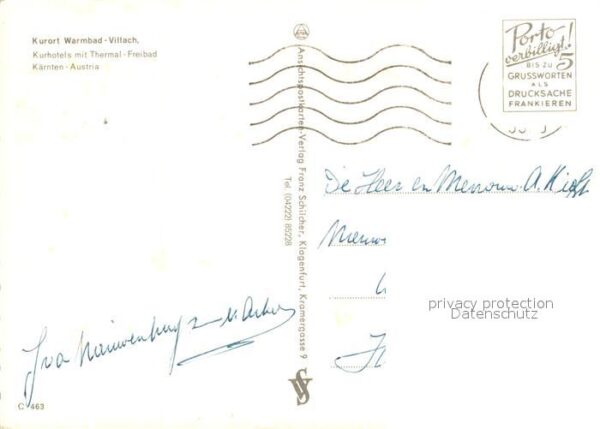 Kurort Warmbad-Villach,
Kurhotels mit Thermal-Freibad
Kärnten-Austria
Porto
verbilligt!
BIS ZU 5
GRUSSWORTEN
ALS
DRUCKSACHE
FRANKIEREN
Ansichtspostkarten-Verlag Franz Schilcher, Klagenfurt, Kramergasse 9
Tel. (04222) 85228
De Heer en Mevrouw A.
privacy protection
Datenschutz
C 463